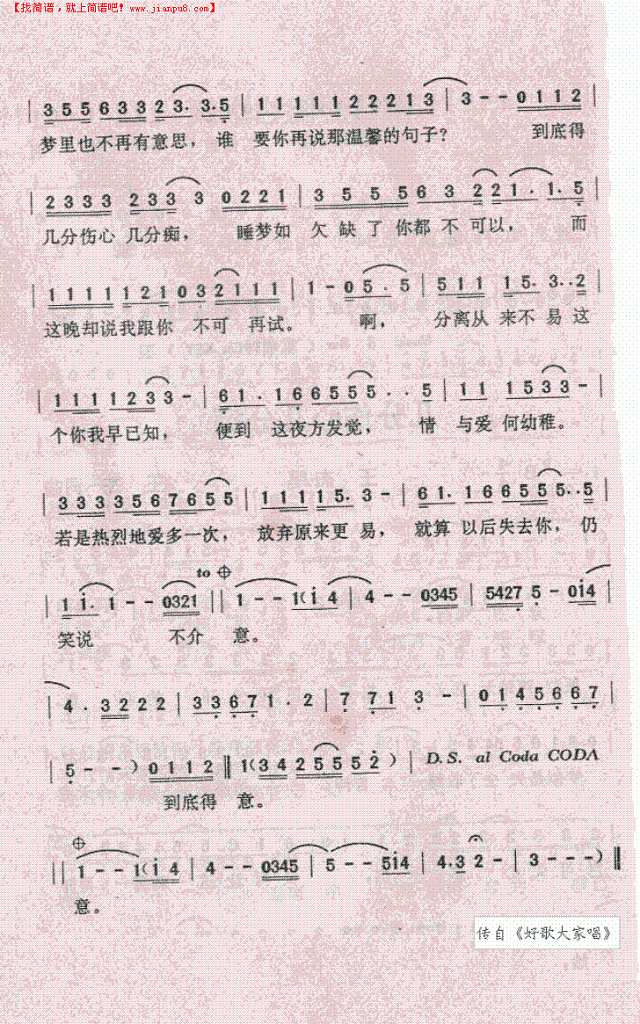 【找简谱，就上简谱吧！www.jianpu8.com】
| 3 5 5 6 3 3 2 3. 3. 5 | 1 1 1 1 1 2 2 2 1 3 | 3 - - 0 1 1 2 |
梦里也不再有意思，谁 要你再说那温馨的句子？ 到底得
| 2 3 3 3 2 3 3 3 0 2 2 1 | 3 5 5 5 6 3 2 2 1 . 1. 5 |
几分伤心 几分痴， 睡梦如 欠缺了你都不可以， 而
| 1 1 1 1 1 2 1 0 3 2 1 1 1 | 1 - 0 5 . 5 | 5 1 1 1 5. 3. . 2 |
这晚却说我跟你 不可 再试。 啊， 分离从 来不易这
| 1 1 1 1 2 3 3 - | 6 1 . 1 6 6 5 5 5 . . 5 | 1 1 1 5 3 3 - |
个你我早已知， 便到 这夜方发觉， 情 与爱 何幼稚。
| 3 3 3 3 5 6 7 6 5 5 | 1 1 1 1 5. 3 - | 6 1. 1 6 6 5 5 5. . 5 |
若是热烈地爱多一次， 放弃原来更易， 就算 以后失去你，仍
to
| 1 i. 1 - - 0321 || 1 - - 1(i 4 | 4 - - 0345 | 5427 5 - 0i4 |
笑说 不分 意。
| 4 . 3 2 2 2 | 3 3 6 7 1 . 2 | 7 7 1 3 - | 0 1 4 5 6 6 7 |
| 5 - - ) 0 1 1 2 || 1 (3 4 2 5 5 5 2 ) | D.S. al Coda CODA
到底得 意。
|| 1 - - 1(i 4 | 4 - - 0345 | 5 - - 5i4 | 4. 3 2 - | 3 - - - ) ||
意。
传自《好歌大家唱》